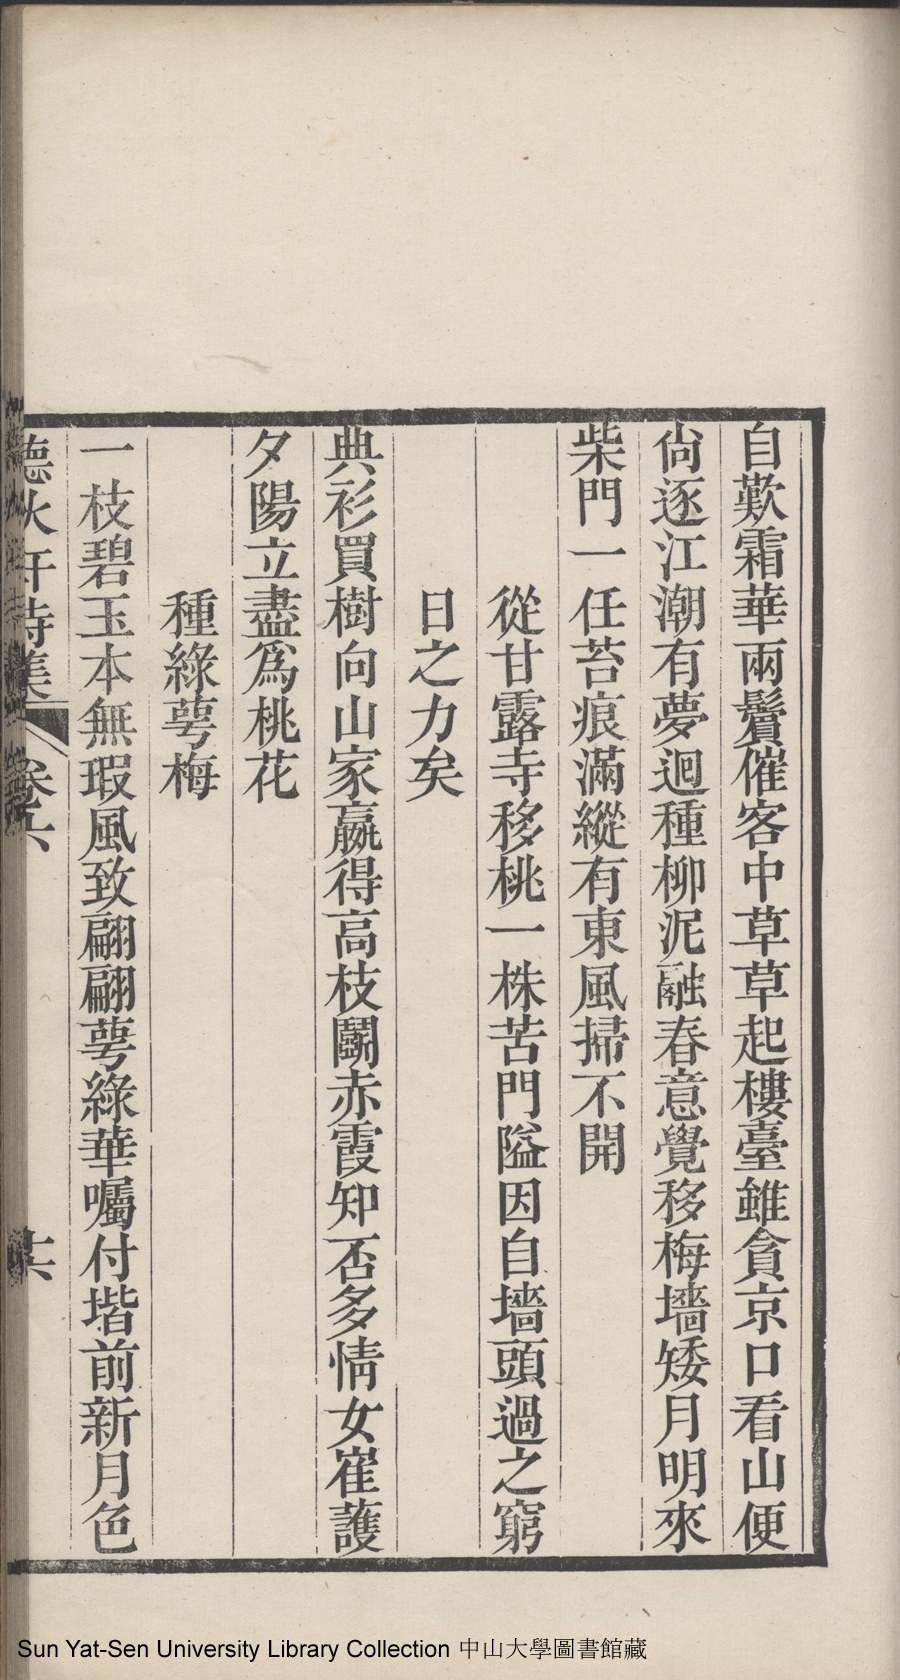 自歎霜華兩鬢催客中草草起樓臺雖貪京口看山便
尙逐江潮有夢迴種柳泥融春意覺移梅墻矮月明來
柴門一任苔痕滿縱有東風掃不開
從甘露寺移桃一株苦門隘因自墻頭過之窮
日之力矣
典衫買樹向山家嬴得高枝鬭赤霞知否多情女崔護
夕陽立盡爲桃花
種綠萼梅
一枝碧玉本無瑕風致翩翩萼綠華囑付堦前新月色
詩集
卷六
Sun Yat-Sen University Library Collection 中山大學圖書館藏